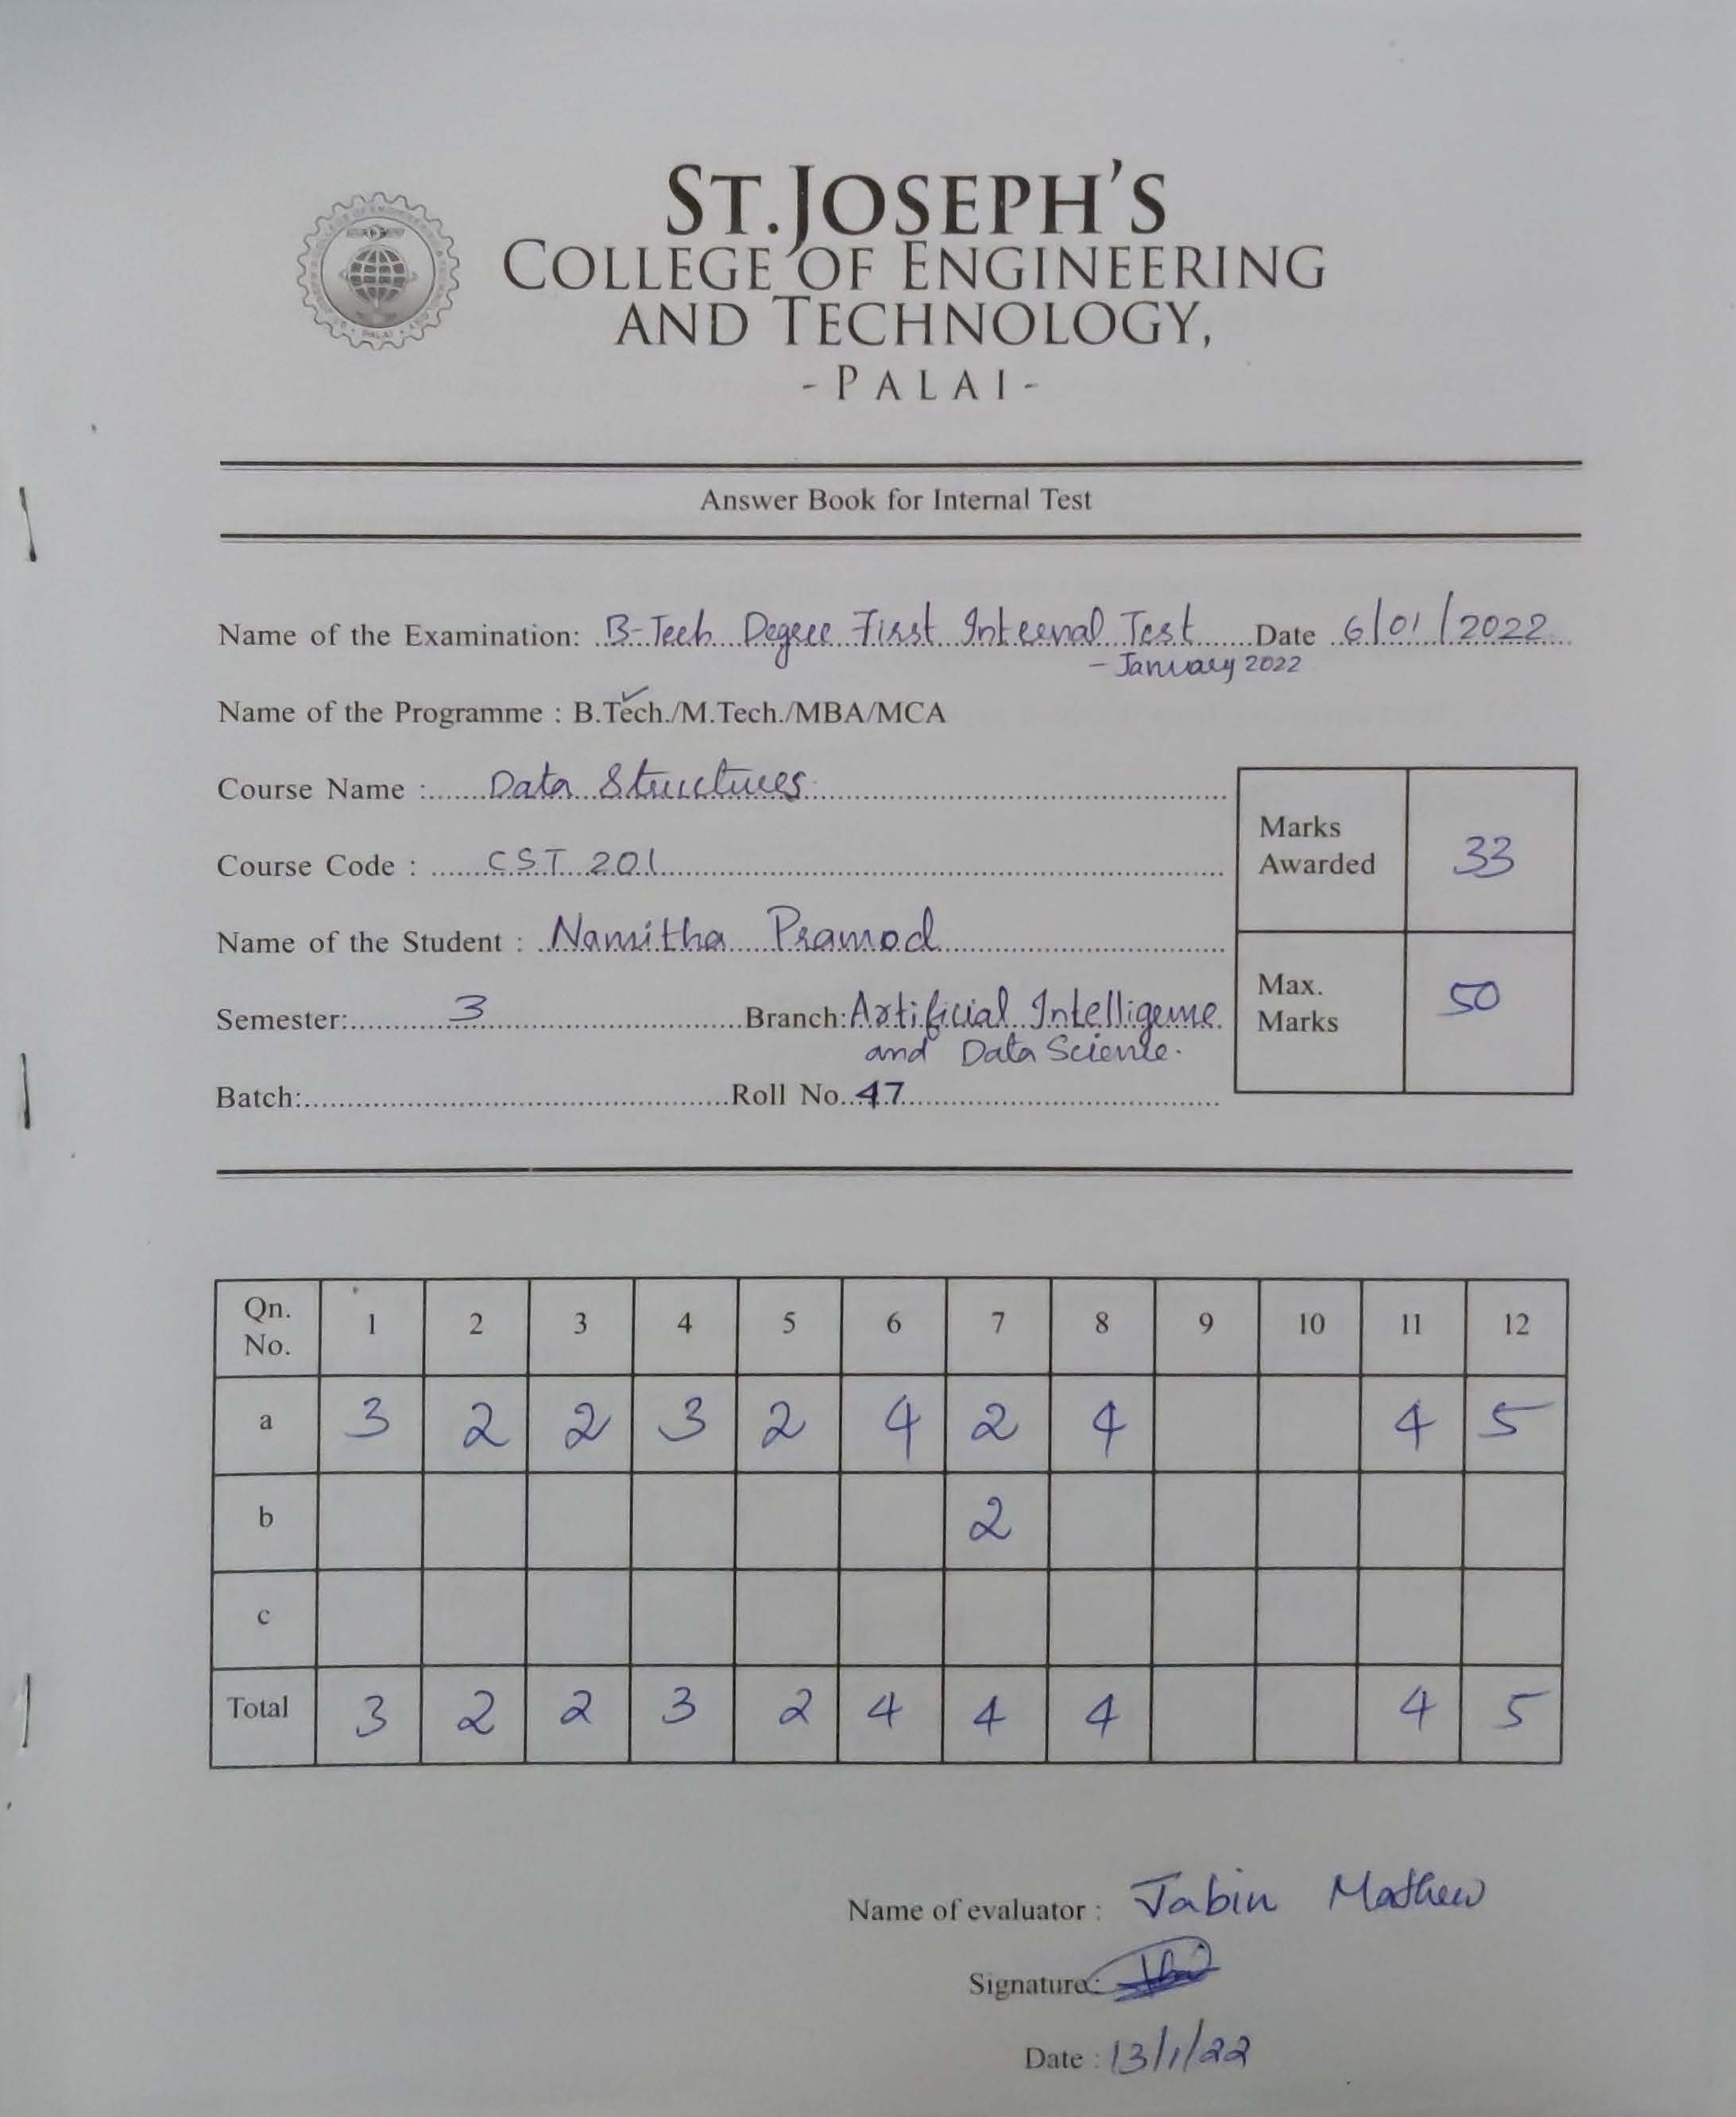 ST.JOSEPH'S
COLLEGE OF ENGINEERING
AND TECHNOLOGY,
-PALAI-
Answer Book for Internal Test
Name of the Examination: B-Tech Degree First Internal Test Date 6/01/2022
- January 2022
Name of the Programme : B.Tech./M.Tech./MBA/MCA
Course Name : Data Structures
Course Code : CST 201
Marks Awarded 33
Name of the Student : Namitha Pramod
Max. Marks 50
Semester: 3 Branch: Artificial Intelligence
and Data Science.
Batch: Roll No. 47
Qn. No. 1 2 3 4 5 6 7 8 9 10 11 12
a 3 2 2 3 2 4 2 4 4 5
b 2
c
Total 3 2 2 3 2 4 4 4 4 5
Name of evaluator : Jabin Mathew
Signature:
Date : 13/1/22